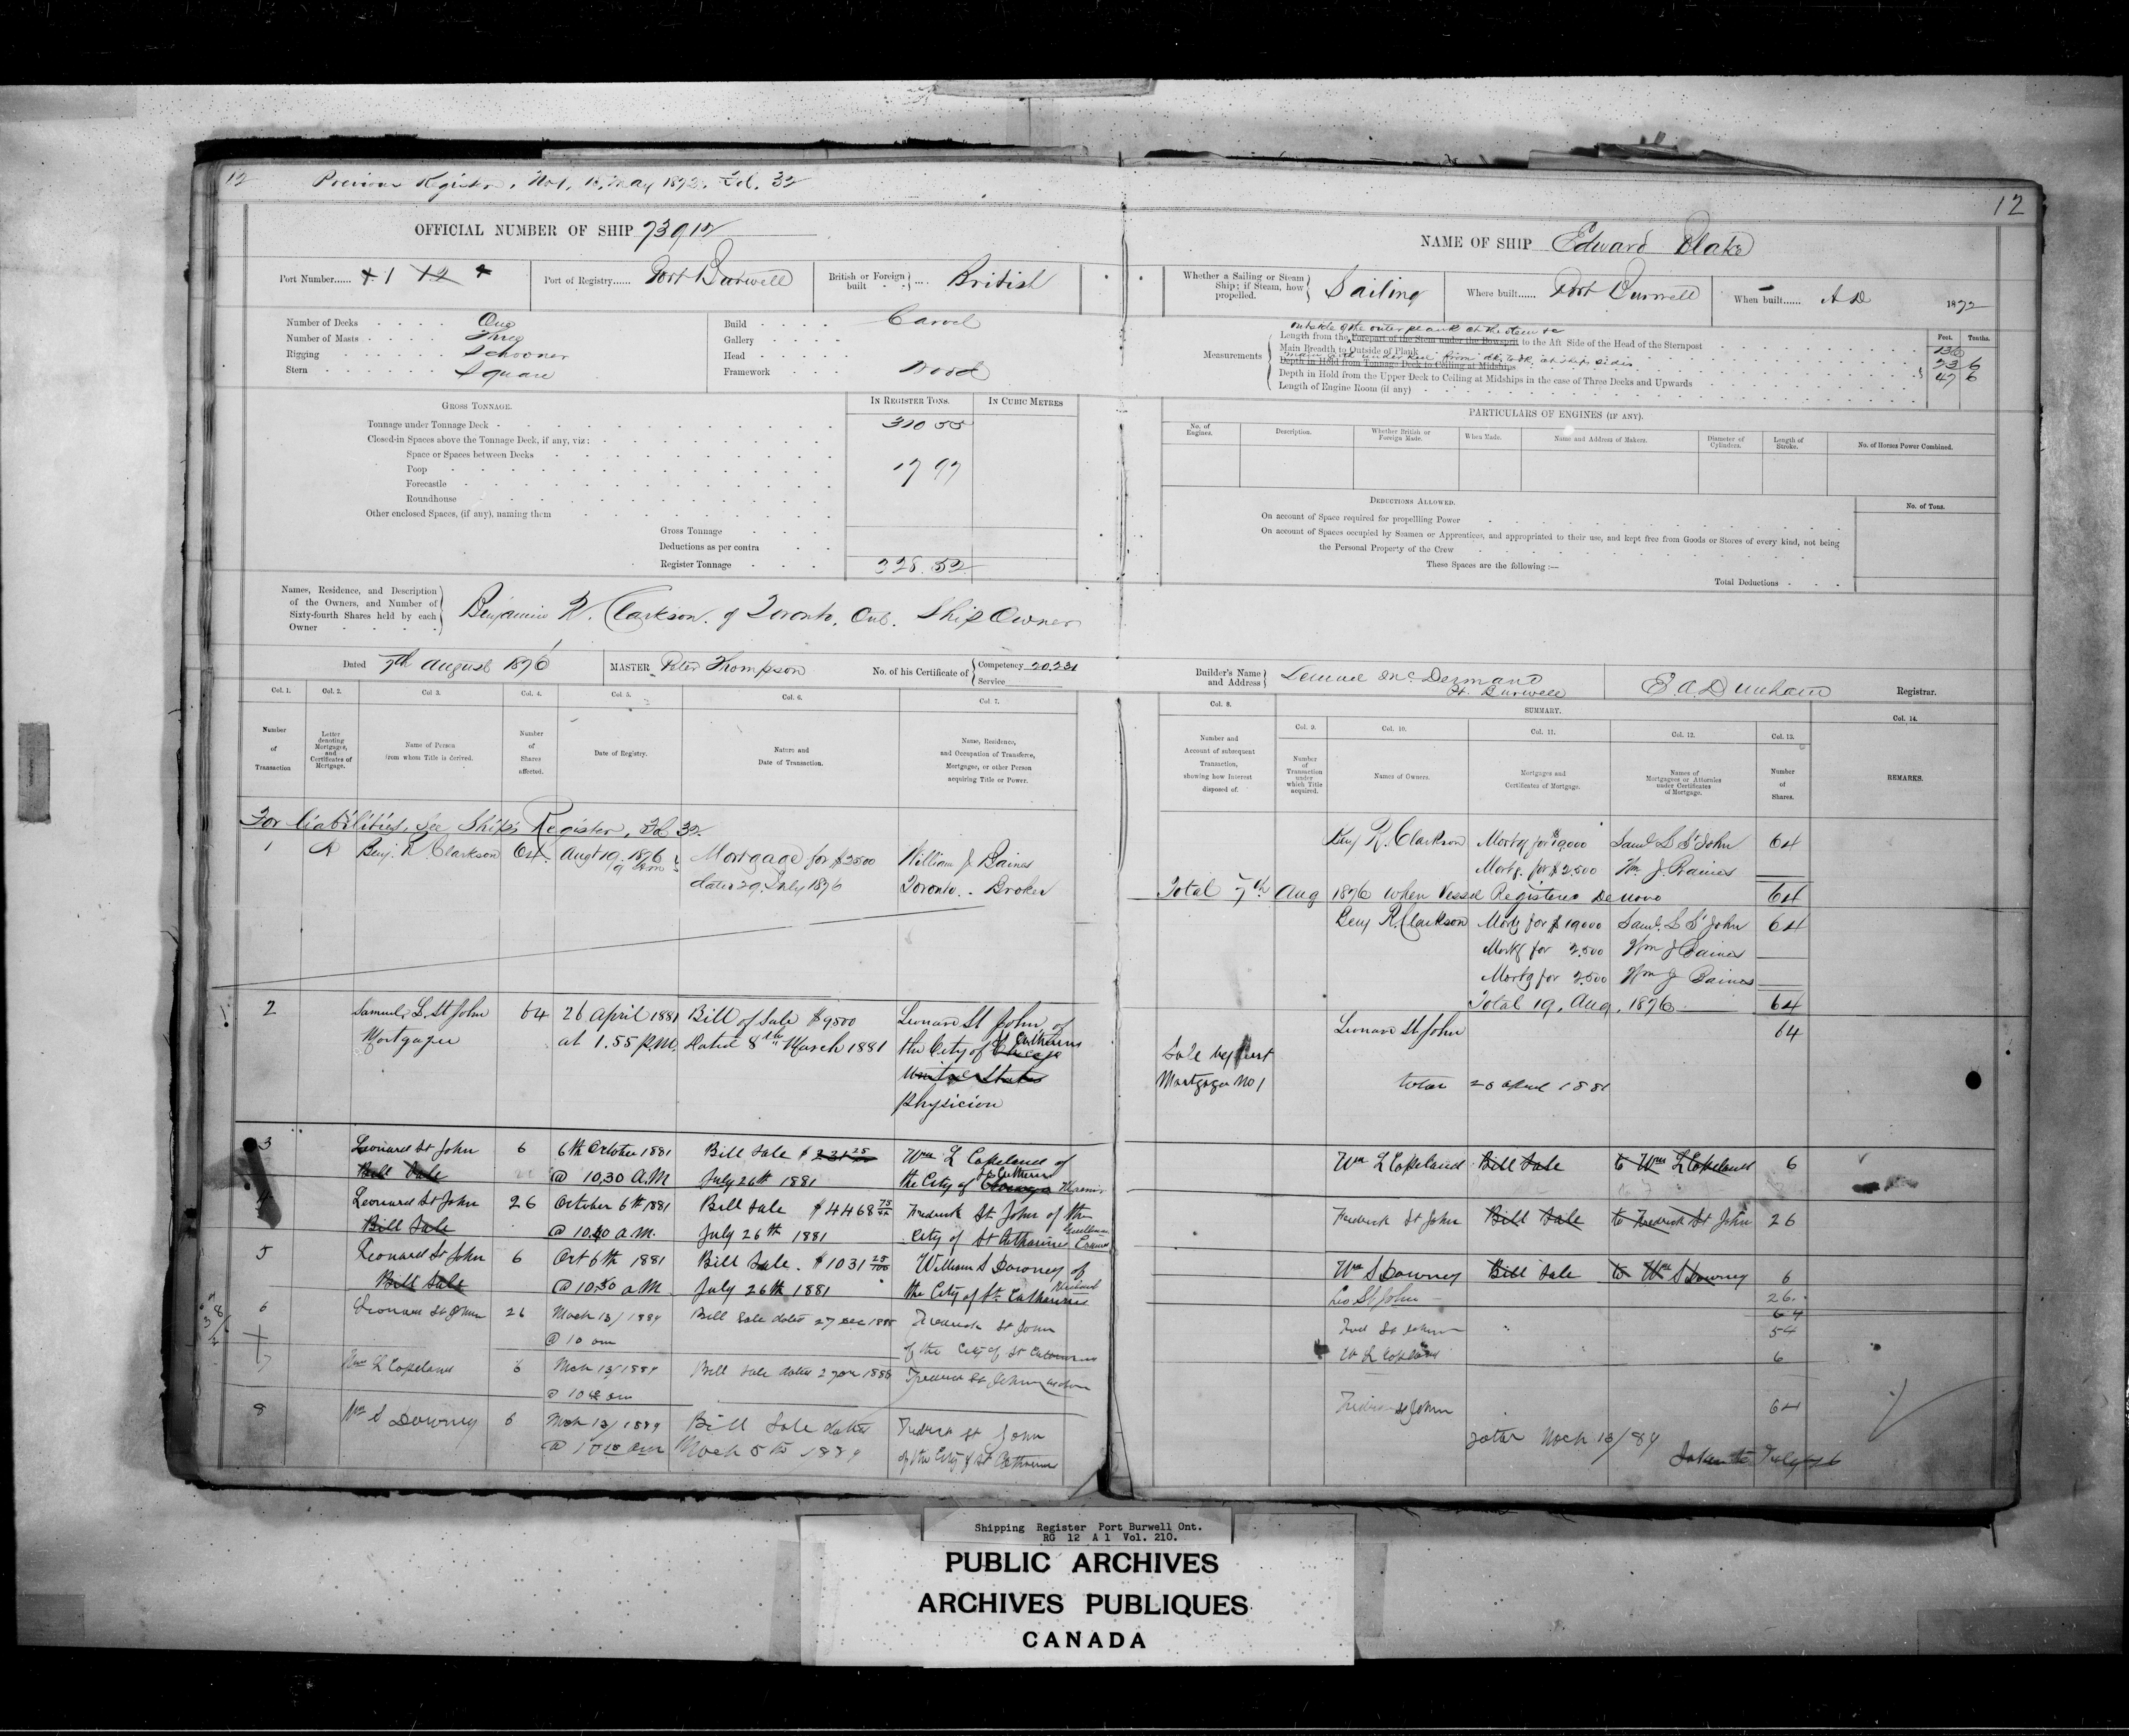 12 Previous Register, No 1, 15, May 1872. Fol. 32
12
OFFICIAL NUMBER OF SHIP 73912
NAME OF SHIP Edward Blake
Port Number...... 1 12
Port of Registry...... Port Burwell
British or Foreign built .... British
Whether a Sailing or Steam Ship; if Steam, how propelled. Sailing
Where built...... Port Burwell
When built...... AD 1872
Number of Decks One
Number of Masts Three
Rigging Schooner
Stern Square
Build Carvel
Gallery
Head
Framework Wood
Measurements
outside of the outer plank at the stem &c
Length from the Forepart of the Stem under the Bowsprit to the Aft Side of the Head of the Sternpost
Main Breadth to Outside of Plank
Depth in Hold from Tonnage Deck to Ceiling at Midships
Depth in Hold from the Upper Deck to Ceiling at Midships in the case of Three Decks and Upwards
Length of Engine Room (if any)
Feet. Tenths.
136
23 6
47 6
GROSS TONNAGE.
IN REGISTER TONS.
IN CUBIC METRES
Tonnage under Tonnage Deck 310 55
Closed-in Spaces above the Tonnage Deck, if any, viz:
Space or Spaces between Decks
Poop 17 97
Forecastle
Roundhouse
Other enclosed Spaces, (if any), naming them
Gross Tonnage
Deductions as per contra
Register Tonnage 328.52
PARTICULARS OF ENGINES (IF ANY).
No. of Engines.
Description.
Whether British or Foreign Made.
When Made.
Name and Address of Makers.
Diameter of Cylinders.
Length of Stroke.
No. of Horses Power Combined.
DEDUCTIONS ALLOWED.
No. of Tons.
On account of Space required for propelling Power
On account of Spaces occupied by Seamen or Apprentices, and appropriated to their use, and kept free from Goods or Stores of every kind, not being
the Personal Property of the Crew
These Spaces are the following :—
Total Deductions
Names, Residence, and Description
of the Owners, and Number of
Sixty-fourth Shares held by each
Owner
Benjamin R. Clarkson. of Toronto, Ont. Ship Owner
Dated 7th August 1876
MASTER Peter Thompson
No. of his Certificate of Competency 20,231
Service
Builder's Name and Address Lemuel McDermand
Pt. Burwell
E. A. Dunham Registrar.
Col. 1. Col. 2. Col 3. Col. 4. Col. 5. Col. 6. Col. 7.
Number of Transaction
Letter denoting Mortgages, and Certificates of Mortgage.
Name of Person from whom Title is derived.
Number of Shares affected.
Date of Registry.
Nature and Date of Transaction.
Name, Residence, and Occupation of Transferee, Mortgagee, or other Person acquiring Title or Power.
Col. 8.
SUMMARY.
Col. 14.
Col. 9. Col. 10. Col. 11. Col. 12. Col. 13.
Number and Account of subsequent Transaction, showing how Interest disposed of.
Number of Transaction under which Title acquired.
Names of Owners.
Mortgages and Certificates of Mortgage.
Names of Mortgagees or Attornies under Certificates of Mortgage.
Number of Shares.
REMARKS.
For liabilities, see Ship's Register, Fol 32.
1 A Benj. R. Clarkson 64 Augt 19. 1876 Mortgage for $2500 William J. Baines
dated 29, July 1876 Toronto. - Broker
2 Samuel L. St John 64 26 April 1881 Bill of Sale $9500 Leonard St John, of
Mortgagee at 1.55 P.M. Dated 8th March 1881 the City of Chicago St Catharines
United States
Physician
3 Leonard St John 6 6th October 1881 Bill Sale $ Wm L Copeland of
Bill Sale @ 10.30 A.M July 26th 1881 the City of St Catharines
4 Leonard St John 26 October 6th 1881 Bill Sale $4468 75 Frederick St John of the
Bill Sale @ 10.40 a.m. July 26th 1881 City of St Catharines
5 Leonard St John 6 Oct 6th 1881 Bill Sale. $1031 25/100 William S Downey of
Bill Sale @ 10.50 a.M. July 26th 1881 the City of St. Catharines
6 Leonard St John 26 Mach 13/1889 Bill Sale dated 27 Dec 1885 Frederick St John
@ 10 am of the City of St Catharines
7 Wm L Copeland 6 Mch 13/1889 Bill Sale dated Frederick St John
8 Wm S Downey 6 Mch 13/1889 Bill Sale dated Fredrick St John
Mach 5th 1889 of the City of St Catharines
Benj R. Clarkson Mortg for $19000 Saml L St John 64
Mortg. for $2.500 Wm J. Baines
Total 7th Aug 1876 when Vessel Registered De novo 64
Benj R. Clarkson Mortg for $19000 Saml. L St John 64
Mortg for 2.500 Wm J Baines
Mortg for 2.500 Wm J Baines
Total 19, Aug, 1876 64
Leonard St John 64
Sale by first
Mortgagee No 1
Total 26 April 1881
Wm L Copeland Bill Sale to Wm L Copeland 6
Frederick St John Bill Sale to Fredrick St John 26
Wm S Downey Bill Sale to Wm S Downey 6
Leo St John 26
64
Fred St John 54
W L Copeland 6
Fredrick St John 64
Total Mach 13/89
Shipping Register Port Burwell Ont.
RG 12 A 1 Vol. 210.
PUBLIC ARCHIVES
ARCHIVES PUBLIQUES
CANADA